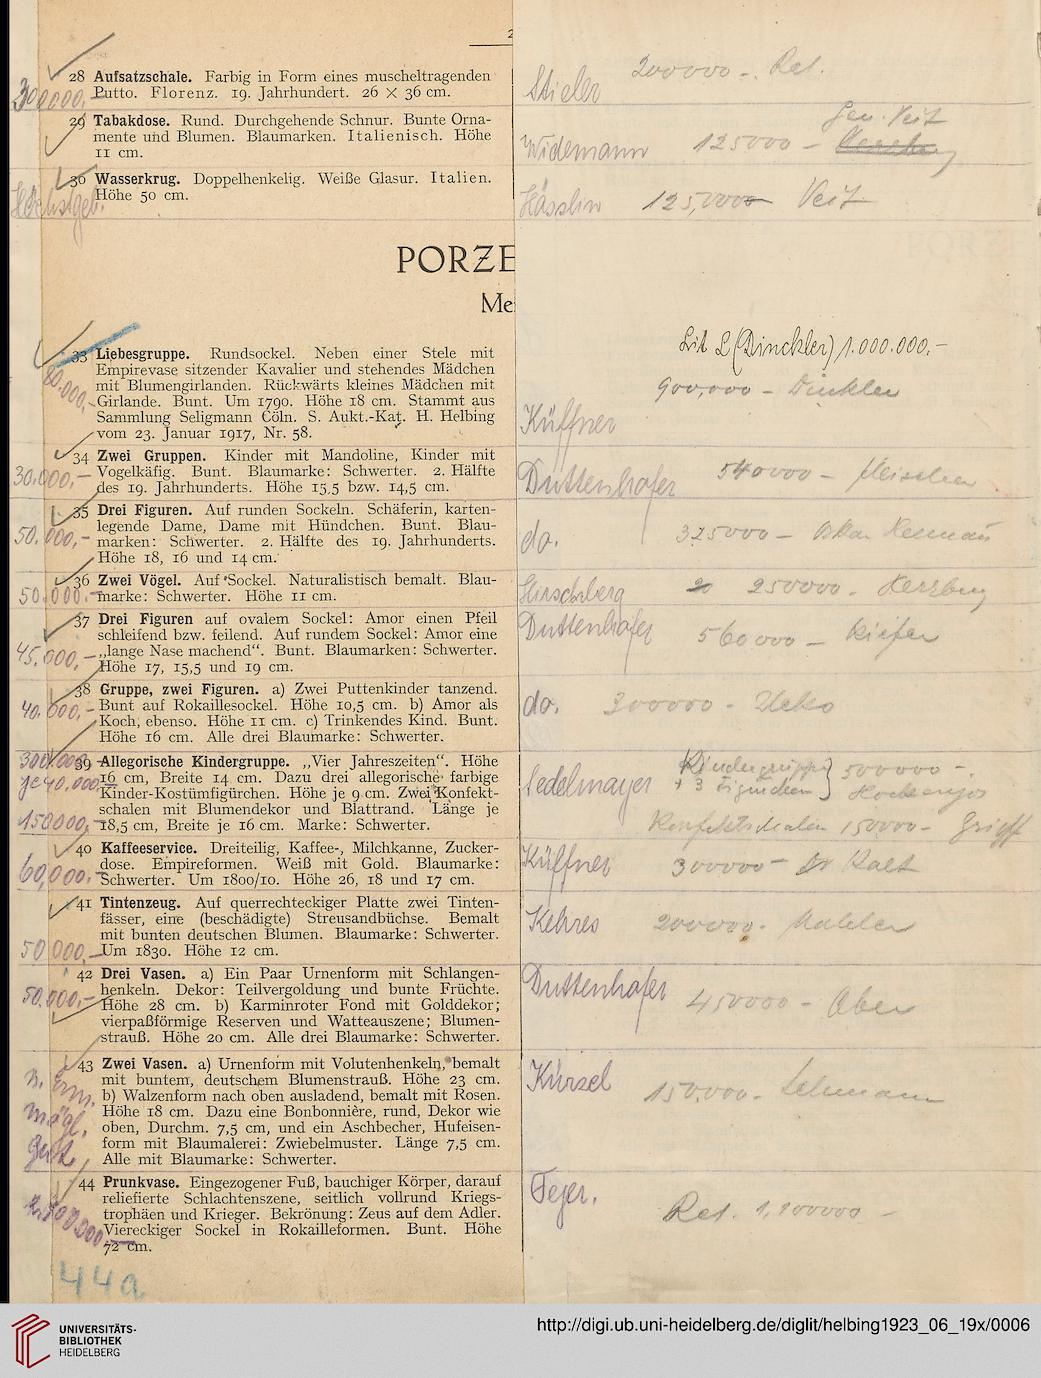 2
28 Aufsatzschale. Farbig in Form eines muscheltragenden
Putto. Florenz. 19. Jahrhundert. 26 × 36 cm.
300000,-
Stieler 200000 -. Ret.
29 Tabakdose. Rund. Durchgehende Schnur. Bunte Orna-
mente und Blumen. Blaumarken. Italienisch. Höhe
11 cm.
Widemann 125000 - Gen. Veit
30 Wasserkrug. Doppelhenkelig. Weiße Glasur. Italien.
Höhe 50 cm.
Höchstgeb.
Hässlin 125,000 Veit
PORZE
Me
33 Liebesgruppe. Rundsockel. Neben einer Stele mit
Empirevase sitzender Kavalier und stehendes Mädchen
mit Blumengirlanden. Rückwärts kleines Mädchen mit
Girlande. Bunt. Um 1790. Höhe 18 cm. Stammt aus
Sammlung Seligmann Cöln. S. Aukt.-Kat. H. Helbing
vom 23. Januar 1917, Nr. 58.
80.000,-
Lit L (Dinckler) 1.000.000,-
900,000 - Dinkler
Küffner
34 Zwei Gruppen. Kinder mit Mandoline, Kinder mit
Vogelkäfig. Bunt. Blaumarke: Schwerter. 2. Hälfte
des 19. Jahrhunderts. Höhe 15,5 bzw. 14,5 cm.
30.000,-
Duttenhofer 540000 -
35 Drei Figuren. Auf runden Sockeln. Schäferin, karten-
legende Dame, Dame mit Hündchen. Bunt. Blau-
marken: Schwerter. 2. Hälfte des 19. Jahrhunderts.
Höhe 18, 16 und 14 cm.
50.000,-
do. 325000 -
36 Zwei Vögel. Auf Sockel. Naturalistisch bemalt. Blau-
marke: Schwerter. Höhe 11 cm.
50.000.-
Hirschberg 250000.
37 Drei Figuren auf ovalem Sockel: Amor einen Pfeil
schleifend bzw. feilend. Auf rundem Sockel: Amor eine
„lange Nase machend“. Bunt. Blaumarken: Schwerter.
Höhe 17, 15,5 und 19 cm.
45.000,-
Duttenhofer 560000 - Kiefer
38 Gruppe, zwei Figuren. a) Zwei Puttenkinder tanzend.
Bunt auf Rokaillesockel. Höhe 10,5 cm. b) Amor als
Koch, ebenso. Höhe 11 cm. c) Trinkendes Kind. Bunt.
Höhe 16 cm. Alle drei Blaumarke: Schwerter.
40.000,-
do. 300000 -
39 Allegorische Kindergruppe. „Vier Jahreszeiten“. Höhe
16 cm, Breite 14 cm. Dazu drei allegorische farbige
Kinder-Kostümfigürchen. Höhe je 9 cm. Zwei Konfekt-
schalen mit Blumendekor und Blattrand. Länge je
18,5 cm, Breite je 16 cm. Marke: Schwerter.
300.000
je 40.000
150000,-
Sedelmayer Kindergruppe + 3 Figürchen } 500000 -.
Konfektschalen 150000 -
40 Kaffeeservice. Dreiteilig, Kaffee-, Milchkanne, Zucker-
dose. Empireformen. Weiß mit Gold. Blaumarke:
Schwerter. Um 1800/10. Höhe 26, 18 und 17 cm.
60,000.-
Küffner 300000 -
41 Tintenzeug. Auf querrechteckiger Platte zwei Tinten-
fässer, eine (beschädigte) Streusandbüchse. Bemalt
mit bunten deutschen Blumen. Blaumarke: Schwerter.
Um 1830. Höhe 12 cm.
50000,-
Kehres 200000.
42 Drei Vasen. a) Ein Paar Urnenform mit Schlangen-
henkeln. Dekor: Teilvergoldung und bunte Früchte.
Höhe 28 cm. b) Karminroter Fond mit Golddekor;
vierpaßförmige Reserven und Watteauszene; Blumen-
strauß. Höhe 20 cm. Alle drei Blaumarke: Schwerter.
50.000,-
Duttenhofer 450000 -
43 Zwei Vasen. a) Urnenform mit Volutenhenkeln, bemalt
mit buntem, deutschem Blumenstrauß. Höhe 23 cm.
b) Walzenform nach oben ausladend, bemalt mit Rosen.
Höhe 18 cm. Dazu eine Bonbonnière, rund, Dekor wie
oben, Durchm. 7,5 cm, und ein Aschbecher, Hufeisen-
form mit Blaumalerei: Zwiebelmuster. Länge 7,5 cm.
Alle mit Blaumarke: Schwerter.
Kürzel 150.000. Lehmann
44 Prunkvase. Eingezogener Fuß, bauchiger Körper, darauf
reliefierte Schlachtenszene, seitlich vollrund Kriegs-
trophäen und Krieger. Bekrönung: Zeus auf dem Adler.
Viereckiger Sockel in Rokailleformen. Bunt. Höhe
72 cm.
Ret.
44a
UNIVERSITÄTS-
BIBLIOTHEK
HEIDELBERG
http://digi.ub.uni-heidelberg.de/diglit/helbing1923_06_19x/0006